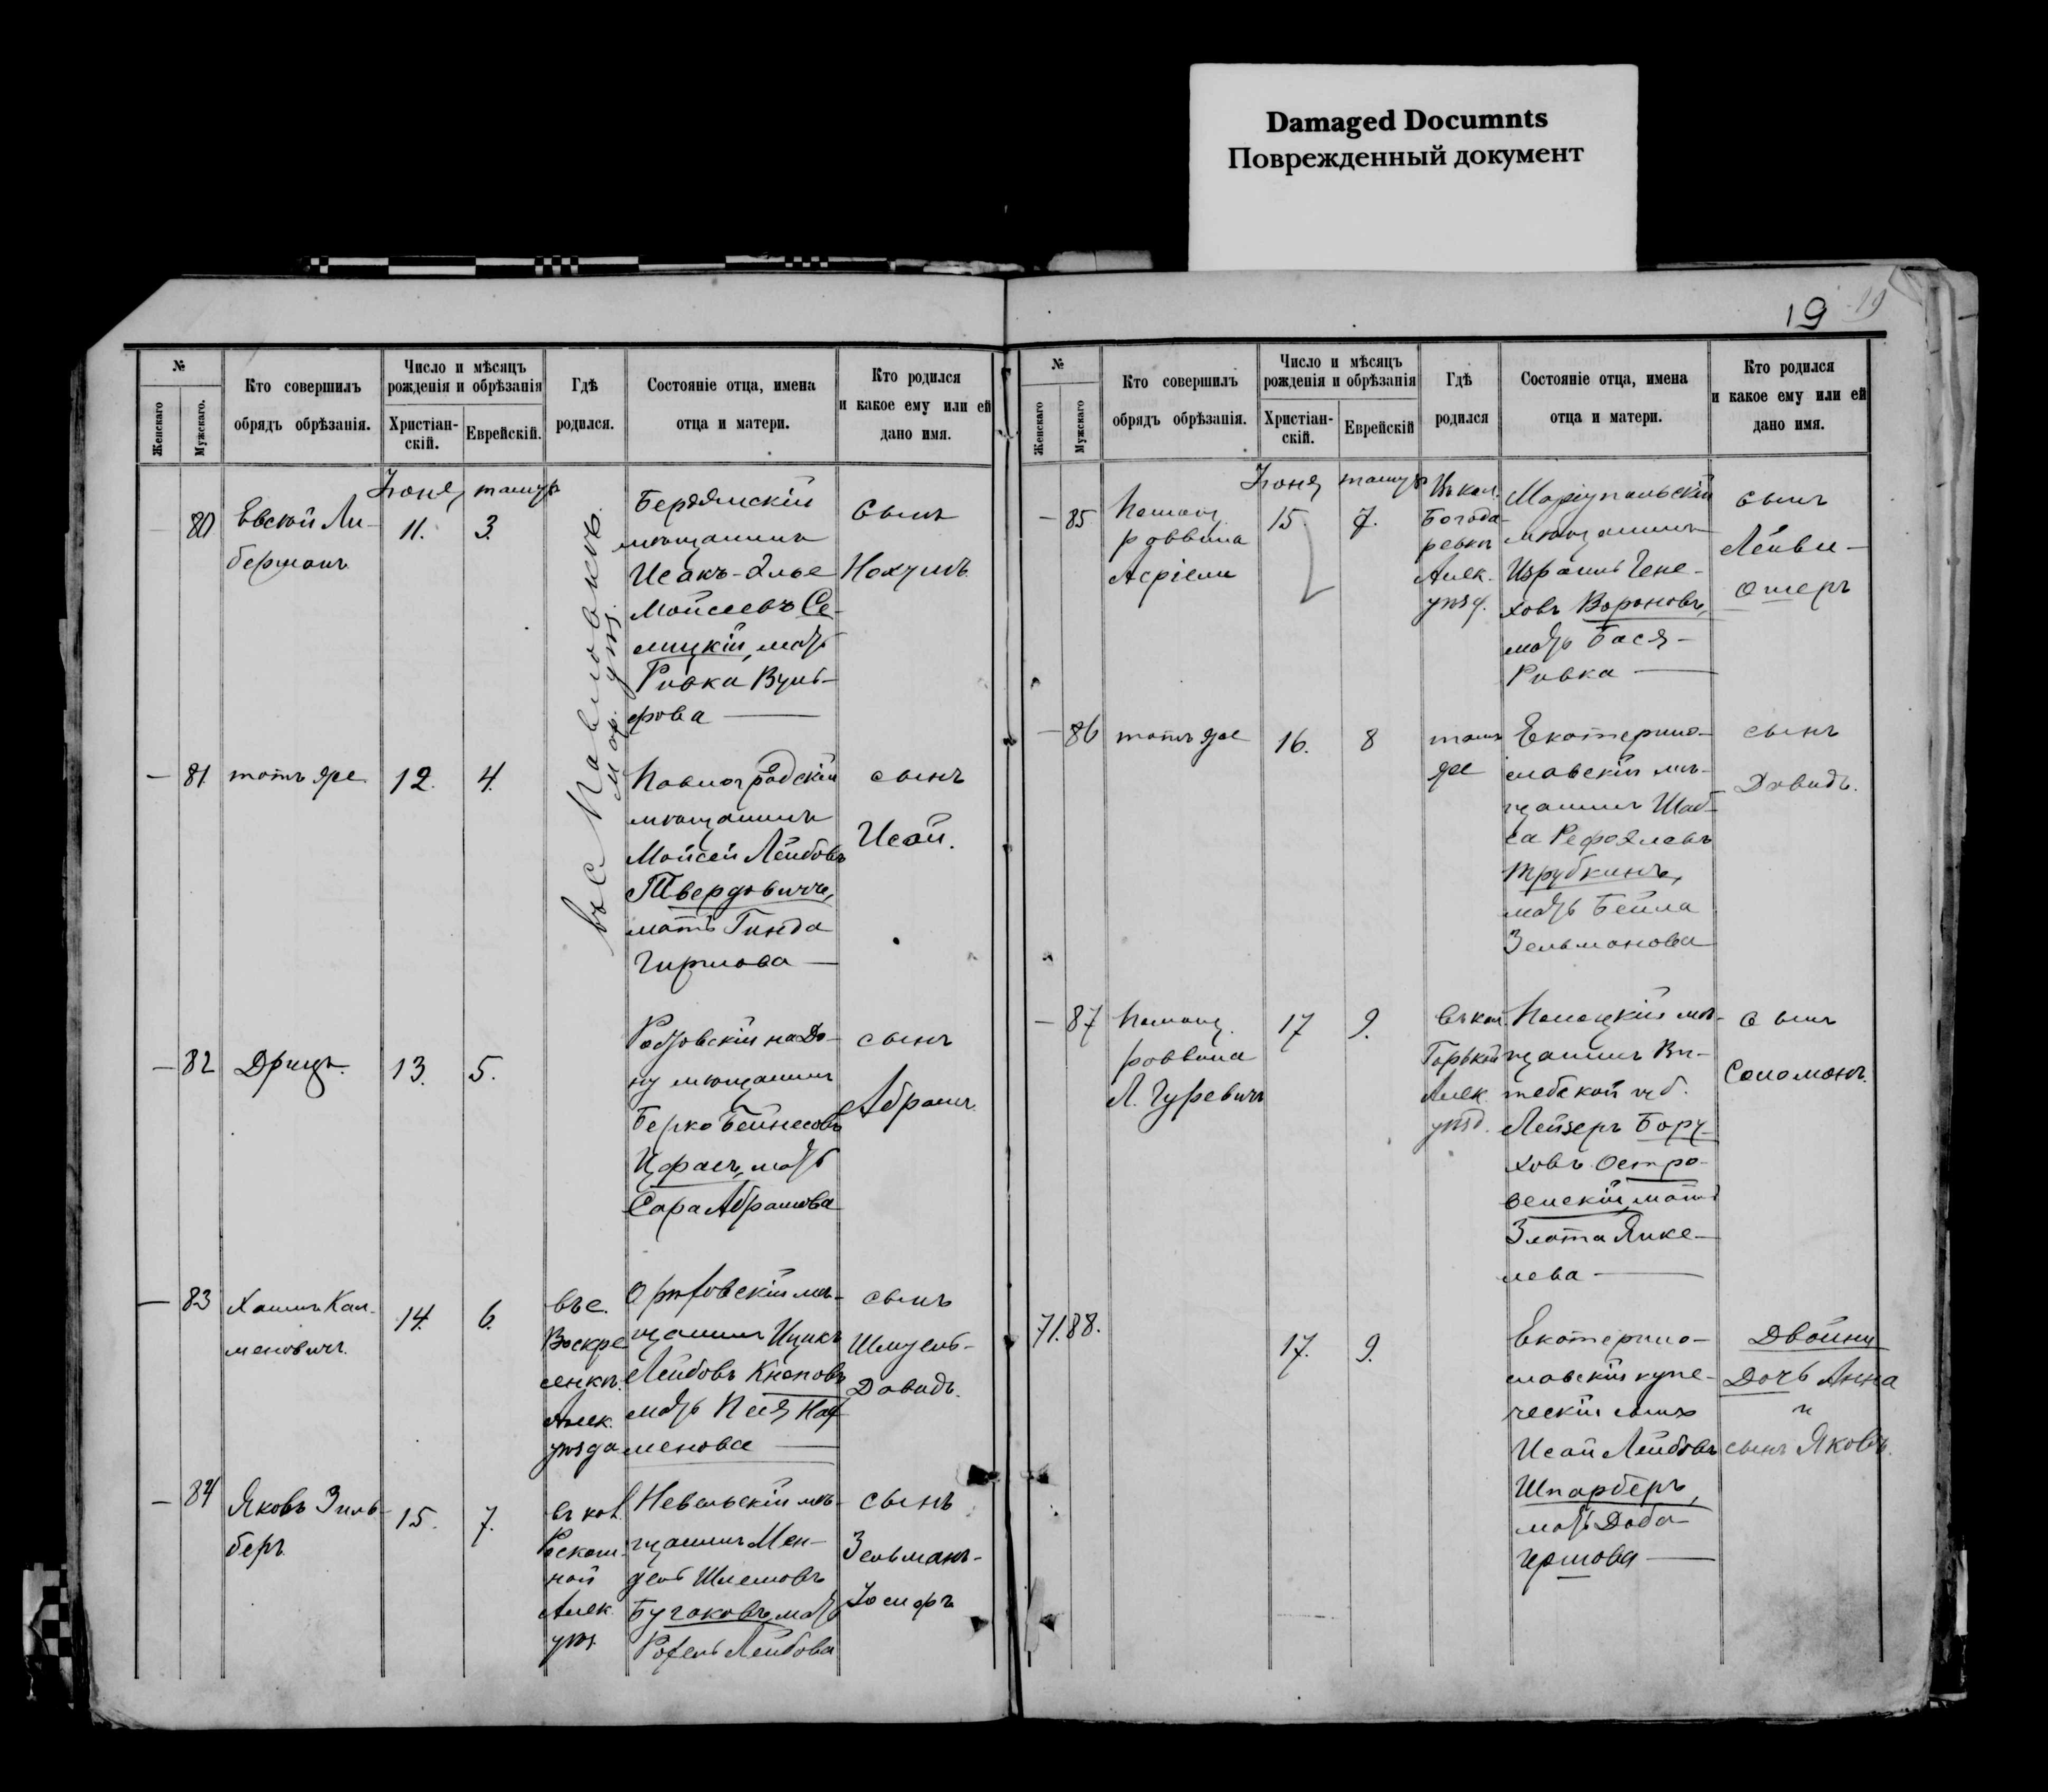 Damaged Documnts
Поврежденный документ
19
19
№
Женскаго
Мужскаго.
Кто совершилъ
обрядъ обрѣзанія.
Число и мѣсяцъ
рожденія и обрѣзанія
Христіан-
скій.
Еврейскій.
Гдѣ
родился.
Состояніе отца, имена
отца и матери.
Кто родился
и какое ему или ей
дано имя.
Іюня
— 80
Евсей Ли-
берманъ
11.
3.
въ с. Павловкѣ
Бердянскій
мѣщанинъ
Исакъ-Элье
Мойсеевъ Се-
мицкій, мать
Ривка Вуль-
фова —
Сынъ
Нохумъ.
— 81.
тотъ же
12.
4.
Павлоградскій
мѣщанинъ
Мойсей Лейбовъ
Твердовичъ,
мать Гинда
Гиршова —
сынъ
Исай.
— 82
Дрицъ.
13.
5.
Ростовскій на До-
ну мѣщанинъ
Берко Бейнесовъ
Цфасъ, мать
Сара Абрамова
сынъ
Абрамъ.
— 83
Хаимъ Кал-
меновичъ.
14.
6.
въ с.
Воскре
сенкѣ.
Алек.
уѣзда
Орѣховскій мѣ-
щанинъ Ицикъ
Лейбовъ Кноповъ
мать Песя
менова —
сынъ
Шмуель-
Давидъ.
— 84
Яковъ Зиль-
беръ.
15.
7.
въ кол.
Роскош-
ной
Алек.
уѣз.
Невельскій мѣ-
щанинъ Мен-
дель Шлемовъ
Бугаковъ, мать
Рохель Лейбова
сынъ
Зельманъ-
Іосифъ
№
Женскаго
Мужскаго
Кто совершилъ
обрядъ обрѣзанія.
Число и мѣсяцъ
рожденія и обрѣзанія
Христіан-
скій.
Еврейскій
Гдѣ
родился
Состояніе отца, имена
отца и матери.
Кто родился
и какое ему или ей
дано имя.
Іюня
— 85
Помощ.
раввина
Асріели
15.
7.
Въ кол.
Богода-
ревкѣ
Алек.
уѣзд.
Маріупольскій
мѣщанинъ
Израиль Гене-
ховъ Вороновъ,
мать Бася-
Ривка —
сынъ
Лейви-
Ошеръ
— 86
тотъ же
16.
8
тамъ
же
Екатерино-
славскій мѣ-
щанинъ Шаб-
са Рефоэлевъ
Трубкинъ,
мать Бейла
Зельманова
сынъ
Давидъ.
— 87
Помощ.
раввина
Л. Гуревичъ
17
9.
въ кол.
Горькой
Алек.
уѣзд.
Полоцкій мѣ-
щанинъ Ви-
тебской губ.
Лейзеръ Бору-
ховъ Остро-
венскій, мать
Злата Янке-
лева —
сынъ
Соломонъ.
71. 88.
17.
9.
Екатерино-
славскій купе-
ческій сынъ
Исай Лейбовъ
Шпарберъ,
мать Доба
Гершова —
Двойни
Дочь Анна
и
сынъ Яковъ.